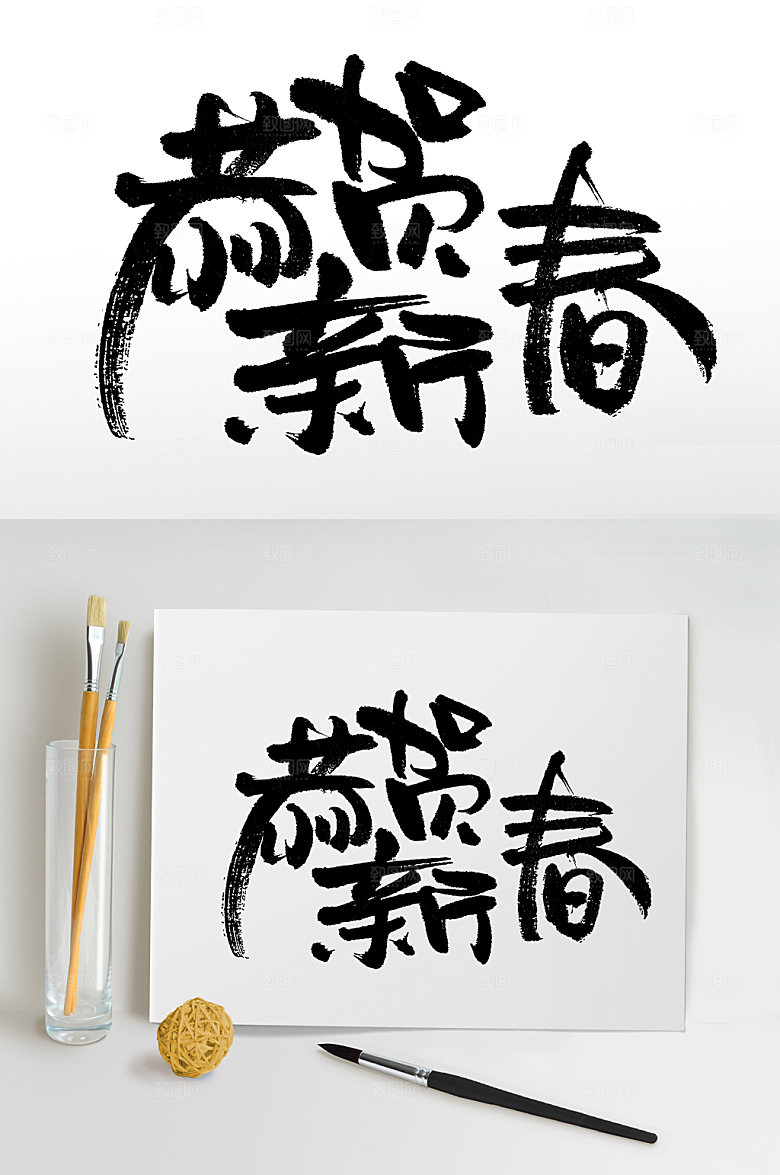 恭贺新春
恭贺新春